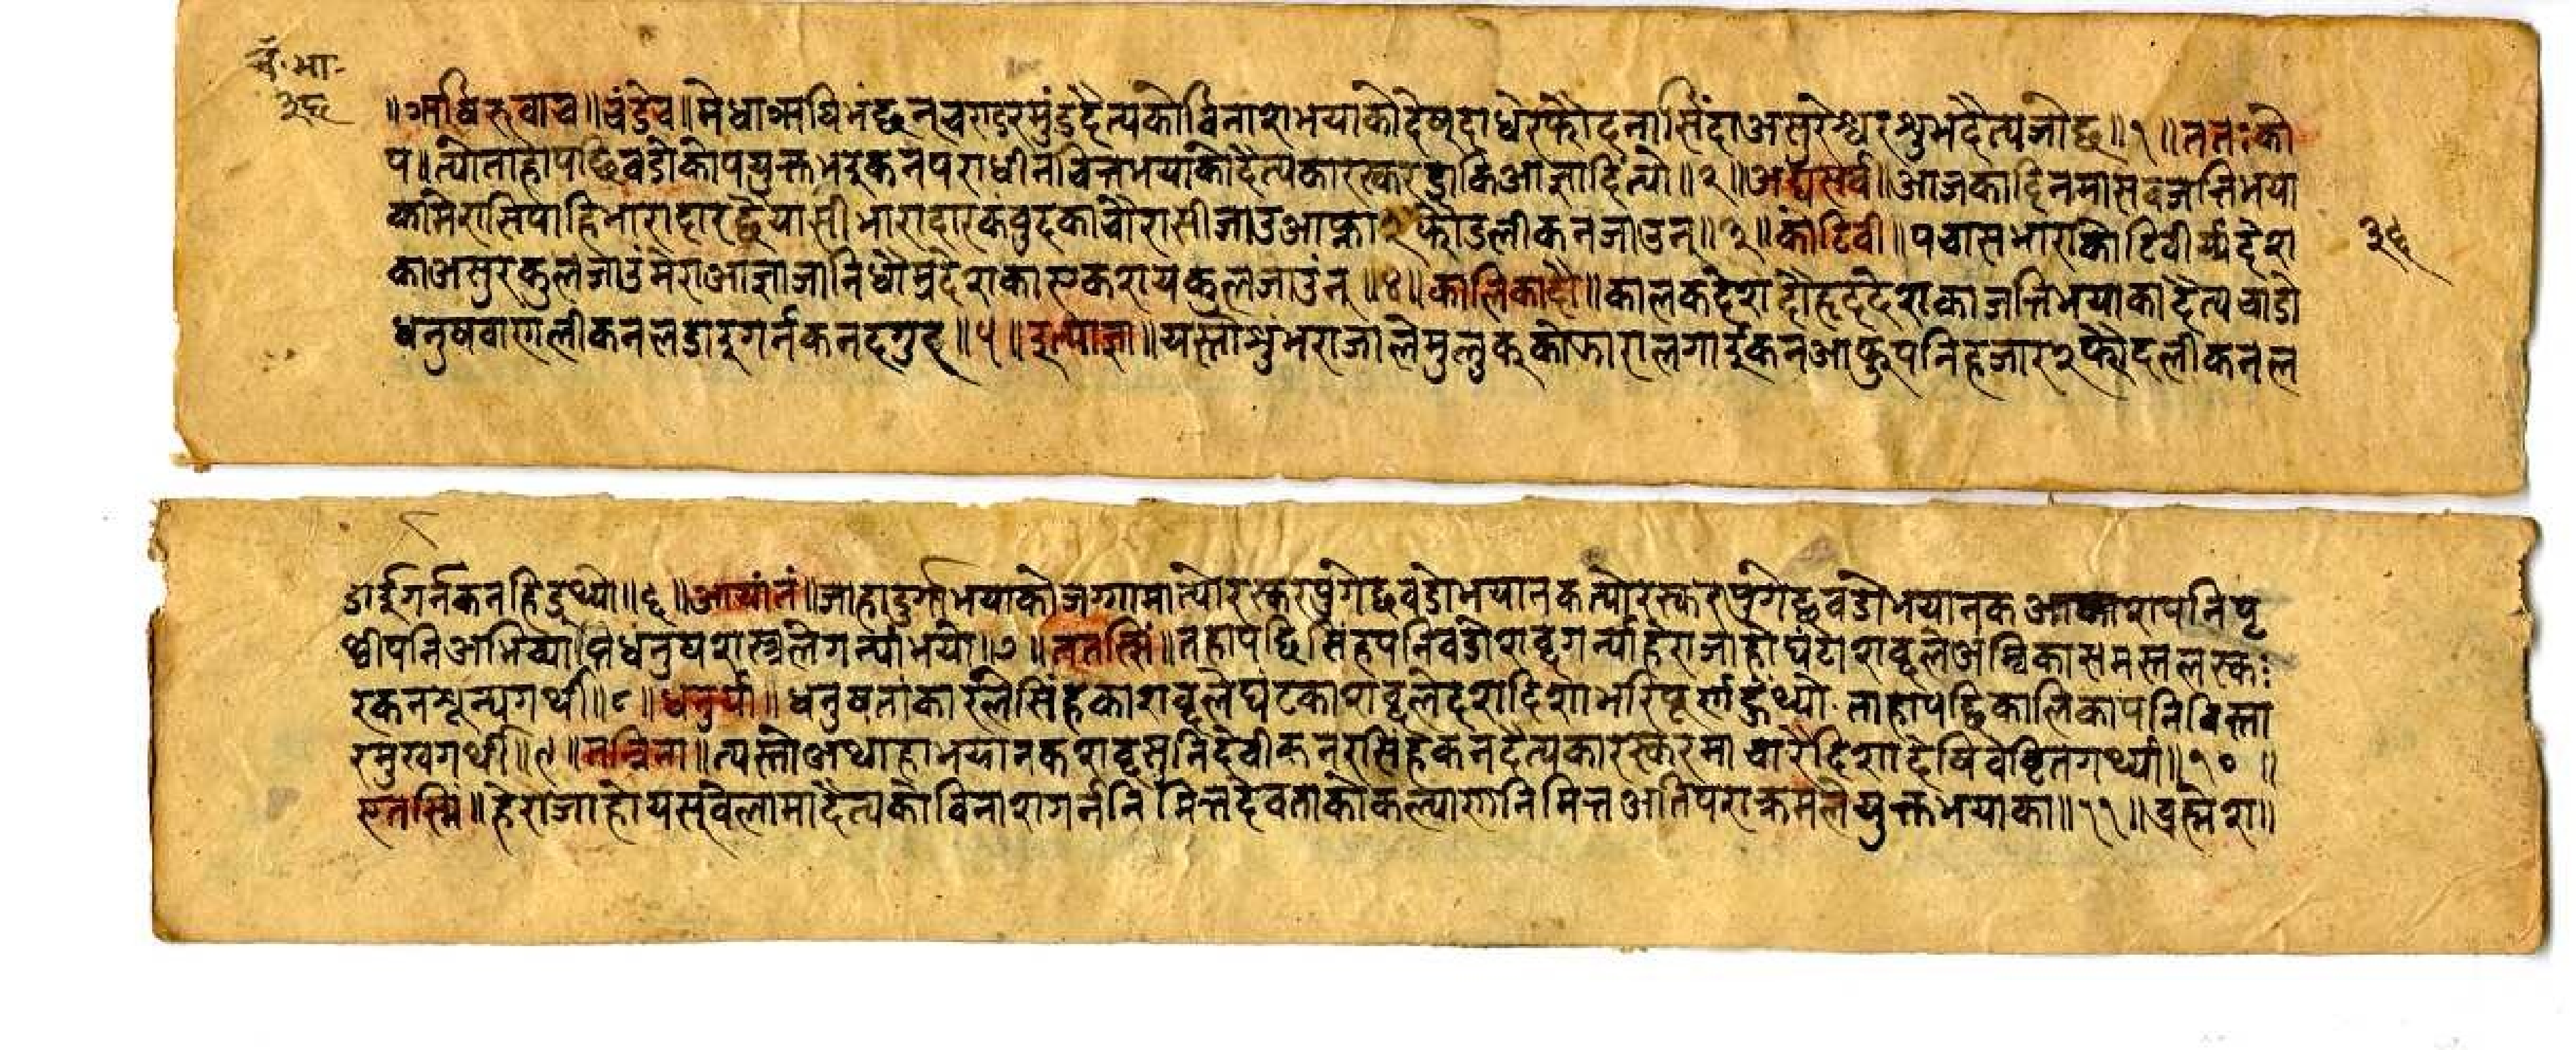 चं.भा.
३६
॥ऋषिरुवाच॥चंडेच॥मेधाऋषिभंछन्चराडरमुंडदैत्यकोविनाशभयाकोदेषदाधेरफौदनासिंदाअसुरेश्वरशुभदैत्यजोछ॥१॥ततःको
प॥त्योताहापछिवडोकोपयुक्तभइकनपराधीनचित्तभयाकोदैत्यकारस्करहाकिआज्ञादिंत्यो॥२॥अद्यसर्व॥आजकादिनमासवजत्तिभया
कामेरासिपाहिभारादारछैयासीभारादारकंवुहकाचौरासीजाउआफ्ना२फौडलीकनजाउन्॥३॥कोटिवी॥पचासभाराकोटिवीर्यदेश
काअसुरकुलजाउंमेराआज्ञाजानिधौम्रदेशकाएकशयकुलजाउंन्॥४॥कालिकादौ॥कालकदेशदौहृददेशकाजत्तिभयाकादैत्यचाडो
धनुषवाणलीकनलडाइगर्नकनहगुह्॥५॥इत्याज्ञा॥यस्तोशुंभराजालेमुलुक्कोफारालगाईकनआफुपनिहजार२फौदलीकनल
३६
डाईगर्नकनहिडथ्यो॥६॥आयांतं॥जाहादुर्गाभयाकोजग्गामात्योरस्करपुगेछवडोभयानकत्योरस्करपुगेछवडोभयानकआकाशपनिपृ
थ्वीपनिअभिव्याप्तिधनुषशस्त्रलेगर्न्याभयो॥७॥ततसिं॥तहापछिसिंहपनिवडोशब्दगर्न्याहेराजाहोघंटाशब्दलेअम्बिकासमस्तलस्क:
रकनशून्यगर्थी॥८॥धनुर्या॥धनुषतांकारलेसिंहकाशब्दलेघंटकाशब्दलेदशदिशाभरिपूर्णहुंथ्यो.ताहापछिकालिकापनिविस्ता
रमुखगर्थी॥९॥तन्निना॥त्यस्तोअथाहाभयानकशब्दसुनिदेवीकनरसिंहकनदैत्यकारस्करमाचारैदिशादेषिवेष्टितगर्थ्यो॥१०॥
एतस्मि॥हेराजाहोयस्वेलामादैत्यकोविनाशगर्ननिमित्तदेवताकोकल्याणनिमित्तअतिपराक्रमलेयुक्तभयाका॥११॥ब्रह्मेश॥